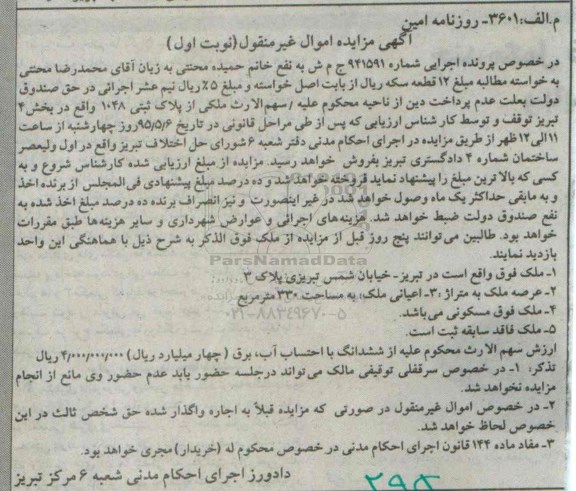 م.الف:۳۶۰۱- روزنامه امین
آگهی مزایده اموال غیرمنقول(نوبت اول)
در خصوص پرونده اجرایی شماره ۹۴۱۵۹۱ ج م ش به نفع خانم حمیده محنتی به زیان آقای محمدرضا محنتی
به خواسته مطالبه مبلغ ۱۲ قطعه سکه ریال از بابت اصل خواسته و مبلغ ۵٪ ریال نیم عشر اجرائی در حق صندوق
دولت بعلت عدم پرداخت دین از ناحیه محکوم علیه /سهم الارث ملکی از پلاک ثبتی ۱۰۴۸ واقع در بخش۴
تبریز توقف و توسط کارشناس ارزیابی که پس از طی مراحل قانونی در تاریخ ۹۵/۵/۶روز چهارشنبه از ساعت
۱۱الی۱۲ظهر از طریق مزایده در اجرای احکام مدنی دفتر شعبه ۶شورای حل اختلاف تبریز واقع در اول ولیعصر
ساختمان شماره ۴ دادگستری تبریز بفروش خواهد رسید. مزایده از مبلغ ارزیابی شده کارشناس شروع و به
کسی که بالاترین مبلغ را پیشنهاد نماید فروخته خواهد شد و ده درصد مبلغ پیشنهادی فی المجلس از برنده اخذ
و به مابقی حداکثر یک ماه وصول خواهد شد در غیر اینصورت و نیز انصراف برنده ده درصد مبلغ اخذ شده به
نفع صندوق دولت ضبط خواهد شد. هزینه‌های اجرائی و عوارض شهرداری و سایر هزینه‌ها طبق مقررات
خواهد بود. طالبین می‌توانند پنج روز قبل از مزایده از ملک فوق الذکر به شرح ذیل با هماهنگی این واحد
بازدید نمایند.
ParsNamadData
۱- ملک فوق واقع است در تبریز- خیابان شمس تبریزی پلاک ۳
۲- عرصه ملک به متراژ :۳- اعیانی ملک: به مساحت ۳۳۰ مترمربع
۰۲۱-۸۸۳۴۹۶۷۰-۵
۴- ملک فوق مسکونی می‌باشد.
۵- ملک فاقد سابقه ثبت است.
ارزش سهم الارث محکوم علیه از ششدانگ با احتساب آب، برق ( چهار میلیارد ریال) ۴/۰۰۰/۰۰۰/۰۰۰ ریال
تذکر: ۱- در خصوص سرقفلی توقیفی مالک می تواند درجلسه حضور یابد عدم حضور وی مانع از انجام
مزایده نخواهد شد.
۲- در خصوص اموال غیرمنقول در صورتی که مزایده قبلاً به اجاره واگذار شده حق شخص ثالث در این
خصوص لحاظ خواهد شد.
۳- مفاد ماده ۱۴۴ قانون اجرای احکام مدنی در خصوص محکوم له (خریدار) مجری خواهد بود.
دادورز اجرای احکام مدنی شعبه ۶ مرکز تبریز